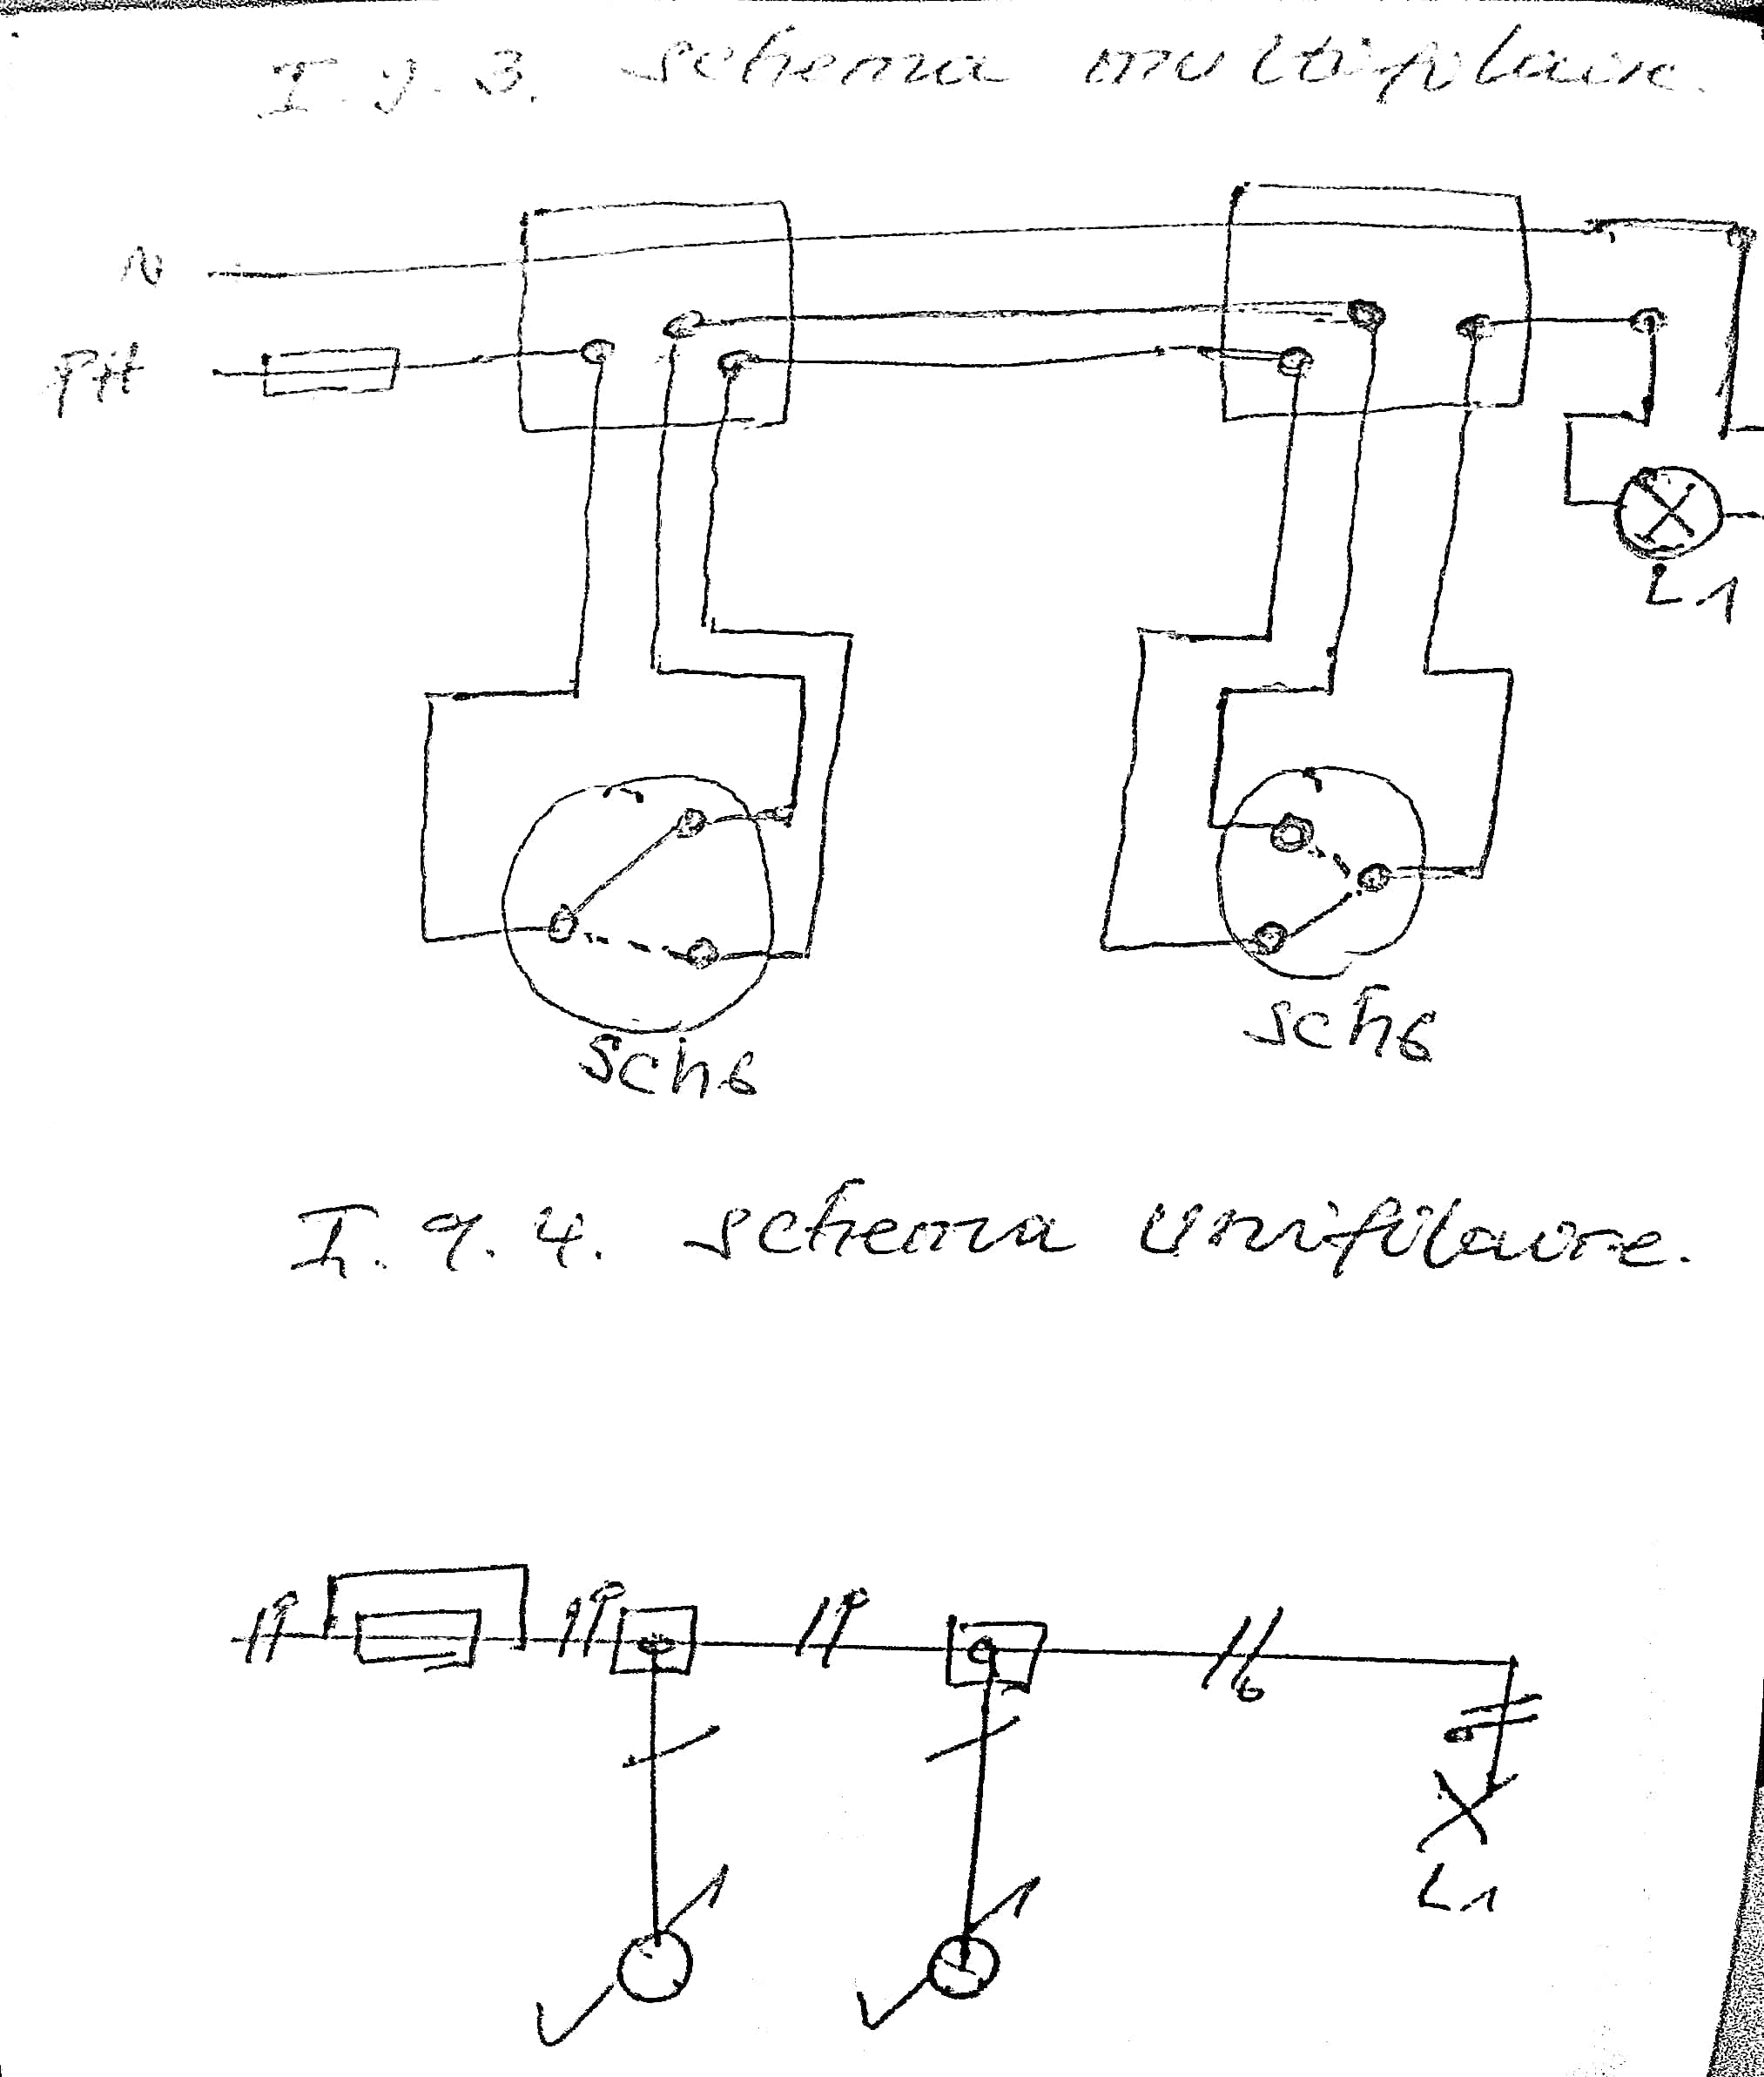 I.9.3. Schema multifilaire.
N
PH
L1
Sch6
Sch6
I.9.4. Schema unifilaire.
L1